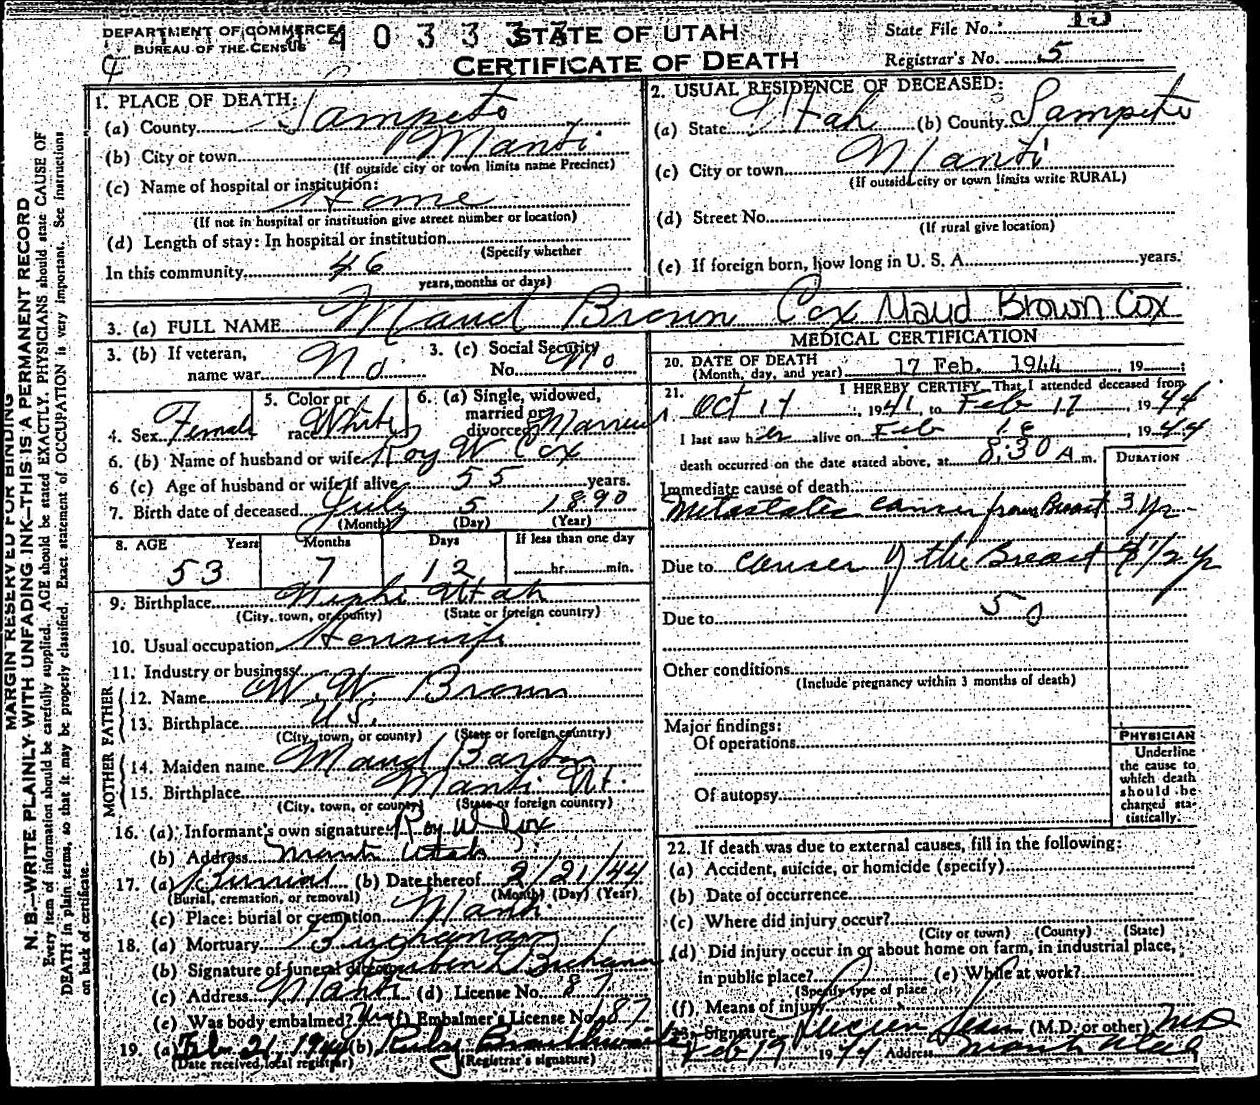 DEPARTMENT OF COMMERCE
BUREAU OF THE CENSUS
4 0 3 3 3
STATE OF UTAH
CERTIFICATE OF DEATH
State File No. 15
Registrar's No. 5
MARGIN RESERVED FOR BINDING
N. B.—WRITE PLAINLY WITH UNFADING INK—THIS IS A PERMANENT RECORD
Every item of information should be carefully supplied. AGE should be stated EXACTLY. PHYSICIANS should state CAUSE OF
DEATH in plain terms, so that it may be properly classified. Exact statement of OCCUPATION is very important. See instructions
on back of certificate
1. PLACE OF DEATH:
(a) County Sampete
(b) City or town Manti
(If outside city or town limits name Precinct)
(c) Name of hospital or institution:
Home
(If not in hospital or institution give street number or location)
(d) Length of stay: In hospital or institution
(Specify whether
In this community 46
years, months or days)
2. USUAL RESIDENCE OF DECEASED:
(a) State Utah (b) County Sampete
(c) City or town Manti
(If outside city or town limits write RURAL)
(d) Street No.
(If rural give location)
(e) If foreign born, how long in U. S. A. years.
3. (a) FULL NAME Maud Brown Cox Maud Brown Cox
3. (b) If veteran, name war No
3. (c) Social Security No. No
4. Sex Female
5. Color or race White
6. (a) Single, widowed, married or divorced Married
6. (b) Name of husband or wife Roy W Cox
6 (c) Age of husband or wife if alive 55 years.
7. Birth date of deceased July 5 1890
(Month) (Day) (Year)
8. AGE Years Months Days If less than one day
53 7 12 hr. min.
9. Birthplace Nephi Utah
(City, town, or county) (State or foreign country)
10. Usual occupation Housewife
11. Industry or business
FATHER
12. Name W. W. Brown
13. Birthplace U.S.
(City, town, or county) (State or foreign country)
MOTHER
14. Maiden name Maud Barton
15. Birthplace Manti Ut.
(City, town, or county) (State or foreign country)
16. (a) Informant's own signature Roy W Cox
(b) Address Manti Utah
17. (a) Burrial (b) Date thereof 2/21/44
(Burial, cremation, or removal) (Month) (Day) (Year)
(c) Place: burial or cremation Manti
18. (a) Mortuary
(b) Signature of funeral director
(c) Address Manti (d) License No. 87
(e) Was body embalmed? Yes (f) Embalmer's License No. 187
19. (a) Feb 21, 1944 (b) Ruby Braithwaite
(Date received local registrar) (Registrar's signature)
MEDICAL CERTIFICATION
20. DATE OF DEATH
(Month, day, and year) 17 Feb. 1944 19
21. I HEREBY CERTIFY That I attended deceased from
Oct 14, 1941, to Feb 17, 1944
I last saw her alive on Feb 1944
death occurred on the date stated above, at 8:30 A m.
DURATION
Immediate cause of death
Metastatic cancer from Breast 3 yr
Due to cancer of the Breast 1/2 yr
50
Due to
Other conditions
(Include pregnancy within 3 months of death)
Major findings:
Of operations
Of autopsy
PHYSICIAN
Underline
the cause to
which death
should be
charged sta-
tistically.
22. If death was due to external causes, fill in the following:
(a) Accident, suicide, or homicide (specify)
(b) Date of occurrence
(c) Where did injury occur?
(City or town) (County) (State)
(d) Did injury occur in or about home on farm, in industrial place,
in public place? (e) While at work?
(Specify type of place
(f). Means of injury
23. Signature (M.D. or other) MD
Feb 19 1944 Address Manti Utah